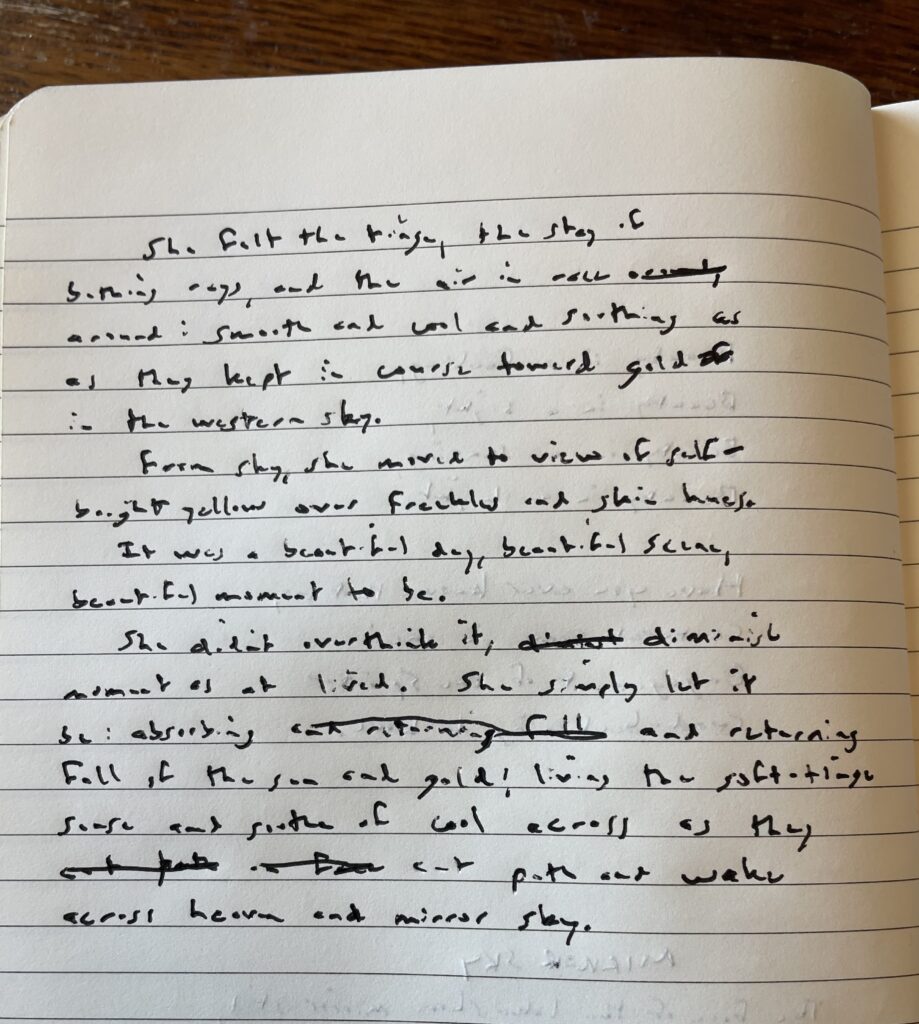 She felt the tinge, the stay of
bathing rays, and the air in race
around : smooth and cool and soothing as
as they kept in course toward gold
in the western sky.
From sky, she moved to view of self –
bright yellow over freckles and skin hues.
It was a beautiful day, beautiful scene,
beautiful moment to be.
She didn't overthink it, diminish
moment as at lived. She simply let it
be : absorbing and returning
full of the sun and gold; living the soft-tinge
sense and soothe of cool across as they
cut path and wake
across heaven and mirror sky.
MIRROR SKY